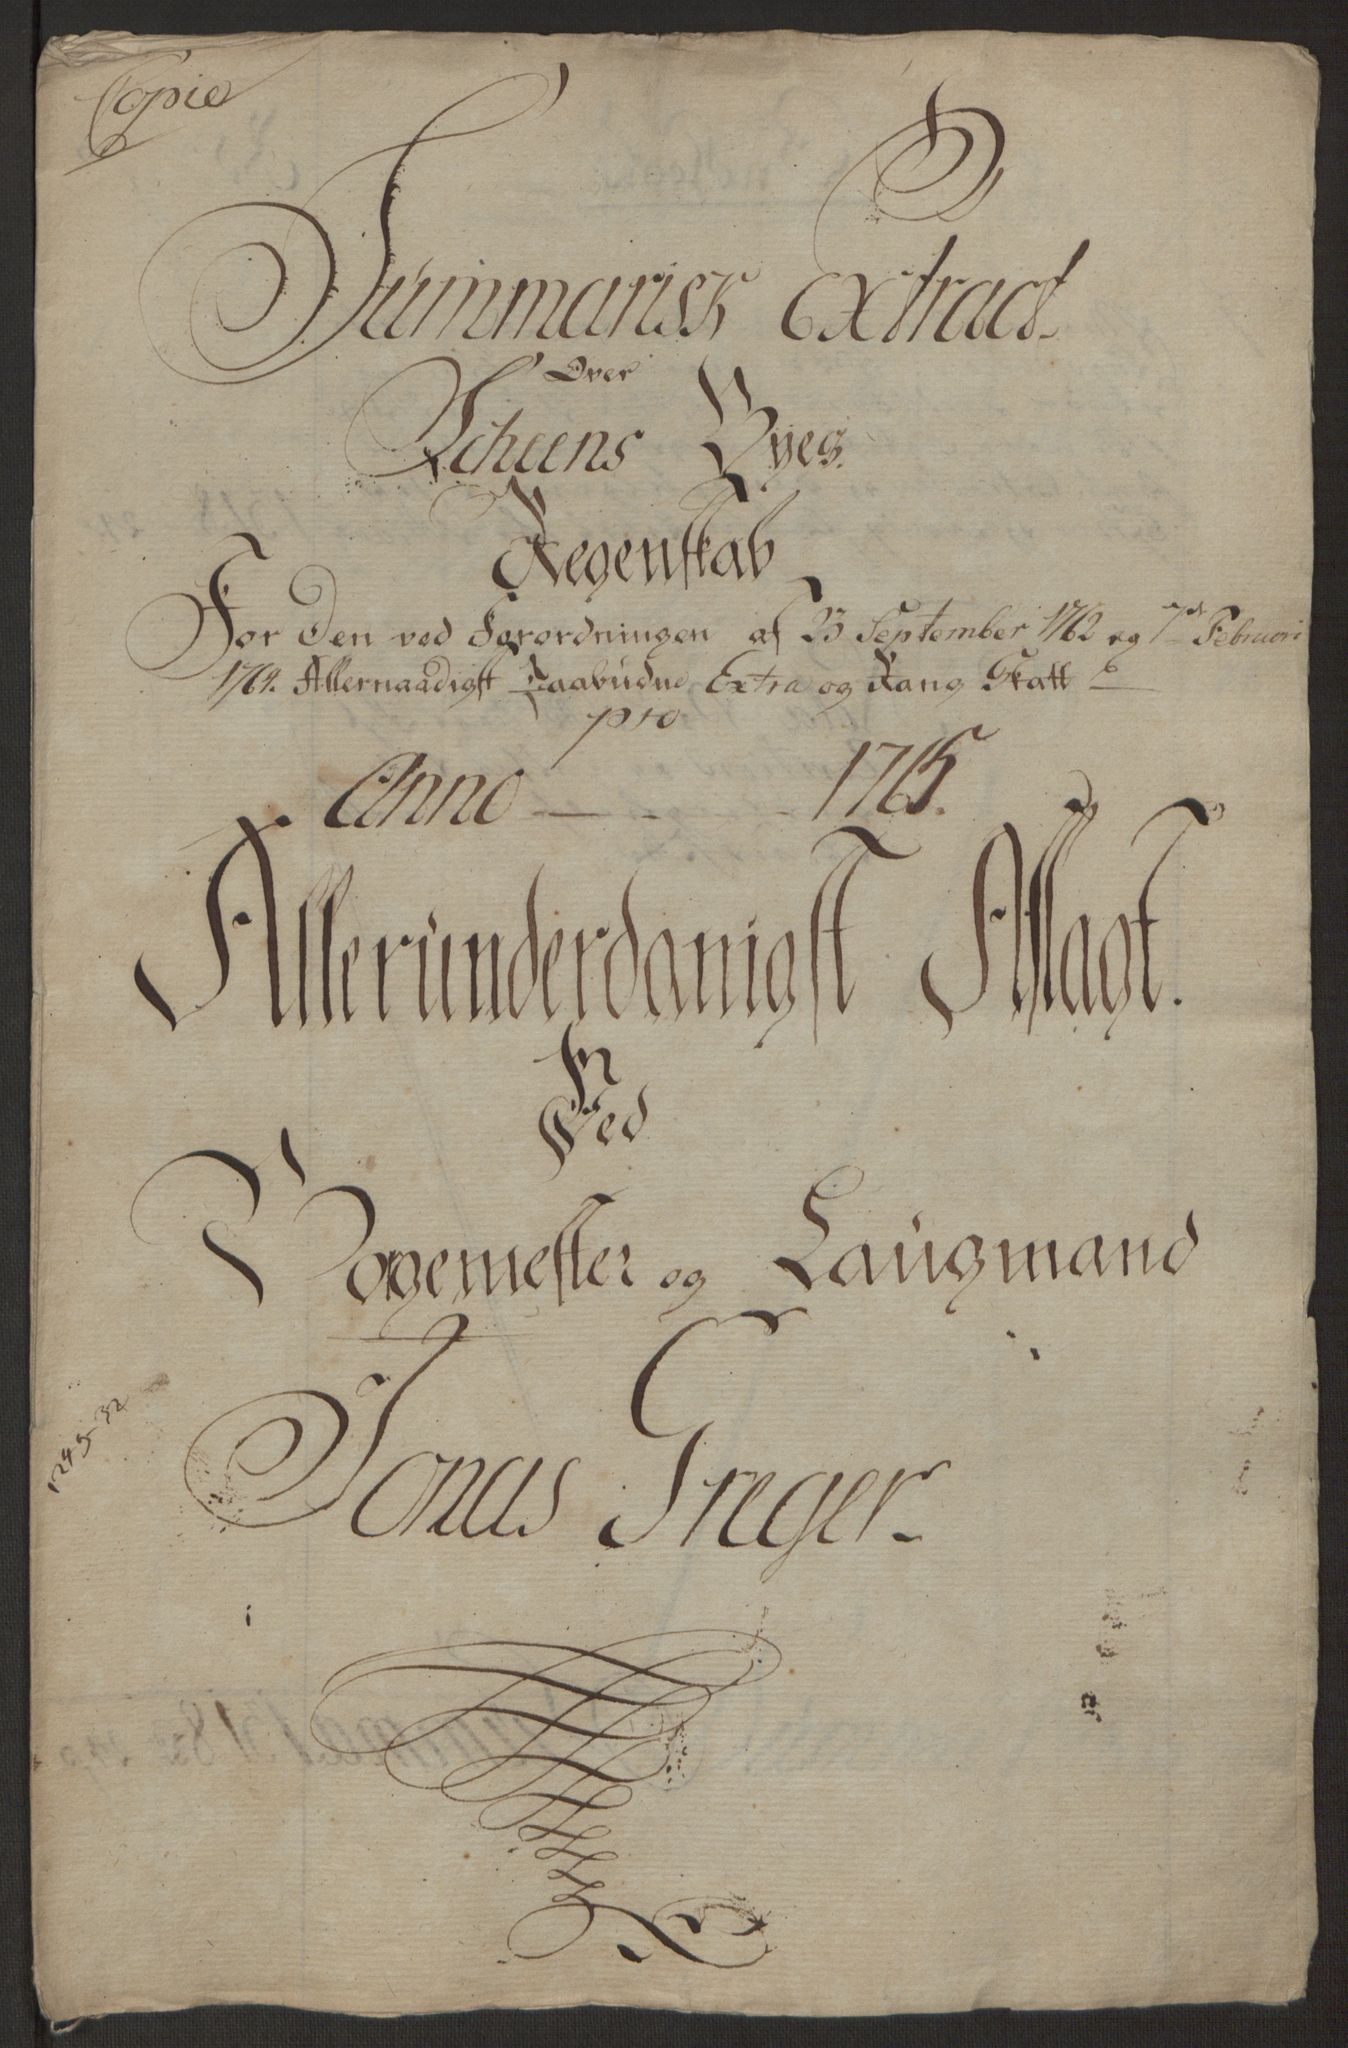 Copie
Summarisk Extract
Over
Scheens Byes
Regenskab
For Den ved Forordningen af 23 September 1762 og 7de Februari
1764. Allernaadigst Paabudne Extra og Rang Skatt
pro
Anno - - - 1765.
Allerunderdanigst Aflagt.
Ved
Borgemester og Laugmand
Jonas Greger
1245-32